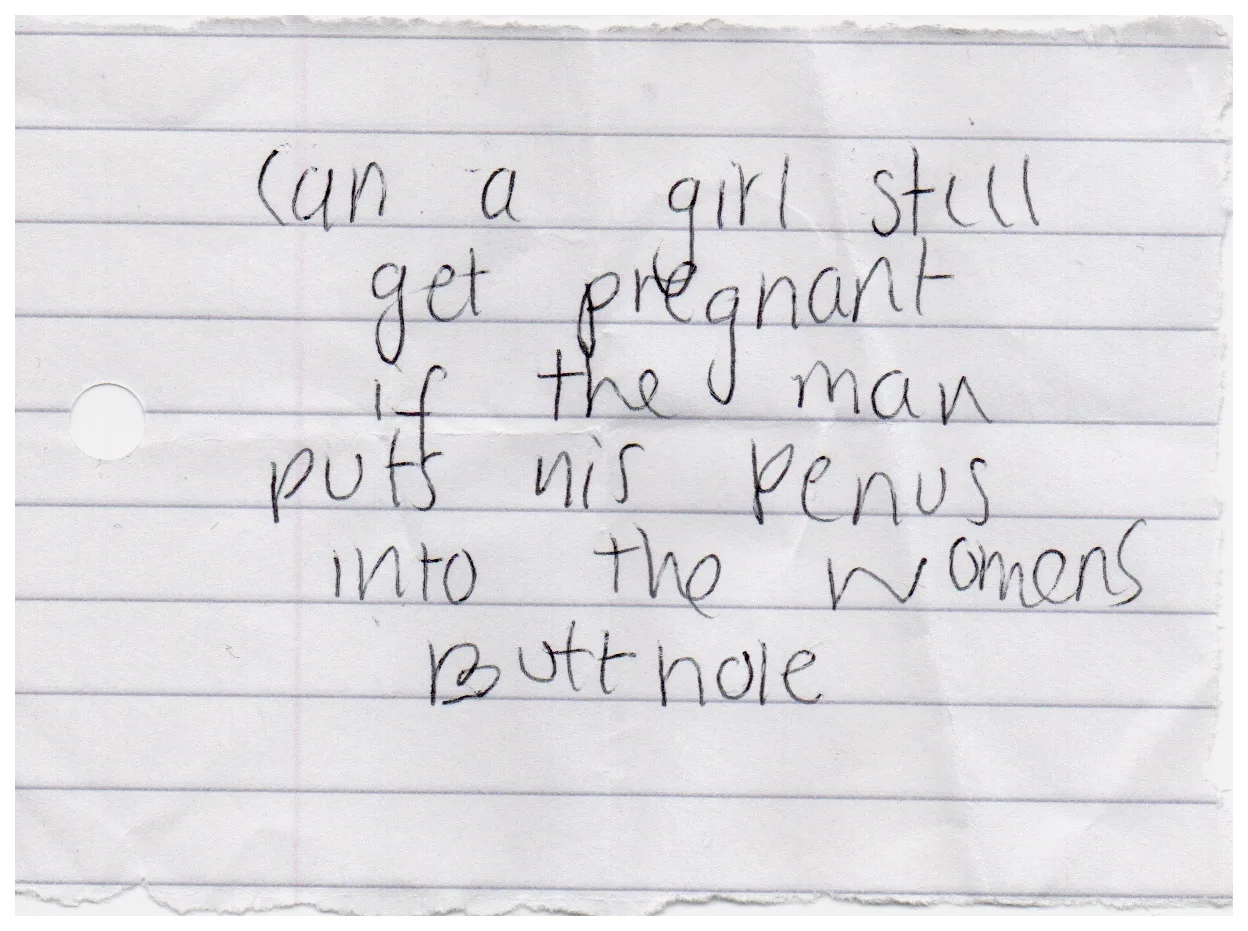 Can a girl still
get pregnant
if the man
putts his penus
into the womens
Butt hole